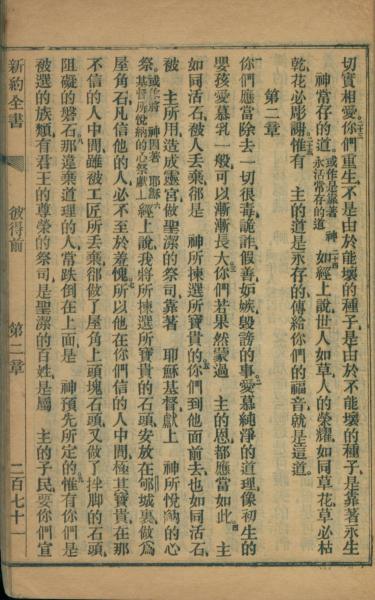 切實相愛、你們重生、不是由於能壞的種子、是由於不能壞的種子、是靠著永生
神常存的道。或作是靠著 神永活常存的道 如經上說、世人如草、人的榮耀、如同草花、草必枯
乾、花必彫謝、惟有 主的道是永存的、傳給你們的福音、就是這道。
第二章
你們應當除去一切很毒、詭詐、假善、妒嫉、毀謗的事、愛慕純淨的道理、像初生的
嬰孩愛慕乳一般、可以漸漸長大、你們若果然蒙過 主的恩、都應當如此。主
如同活石、被人丟棄、卻是 神所揀選所寶貴的、你們到他面前去、也如同活石、
被 主所用、造成靈宮、做聖潔的祭司、靠著 耶穌基督獻上 神所悅納的心
祭。或作將 神因著 耶穌基督所悅納的心祭獻上 經上說、我將所揀選所寶貴的石頭、安放在郇城裏、做爲
屋角石、凡信他的人必不至於羞愧、所以他在你們信的人中間、極其寶貴、在那
不信的人中間、雖被工匠所丟棄、卻做了屋角上頭塊石頭、又做了拌腳的石頭、
阻礙的磐石、那違棄道理的人、常跌倒在上面、是 神預先所定的、惟有你們是
被選的族類、有君王的尊榮的祭司、是聖潔的百姓、是屬 主的子民、要你們宣
新約全書
彼得前 第二章
二百七十一